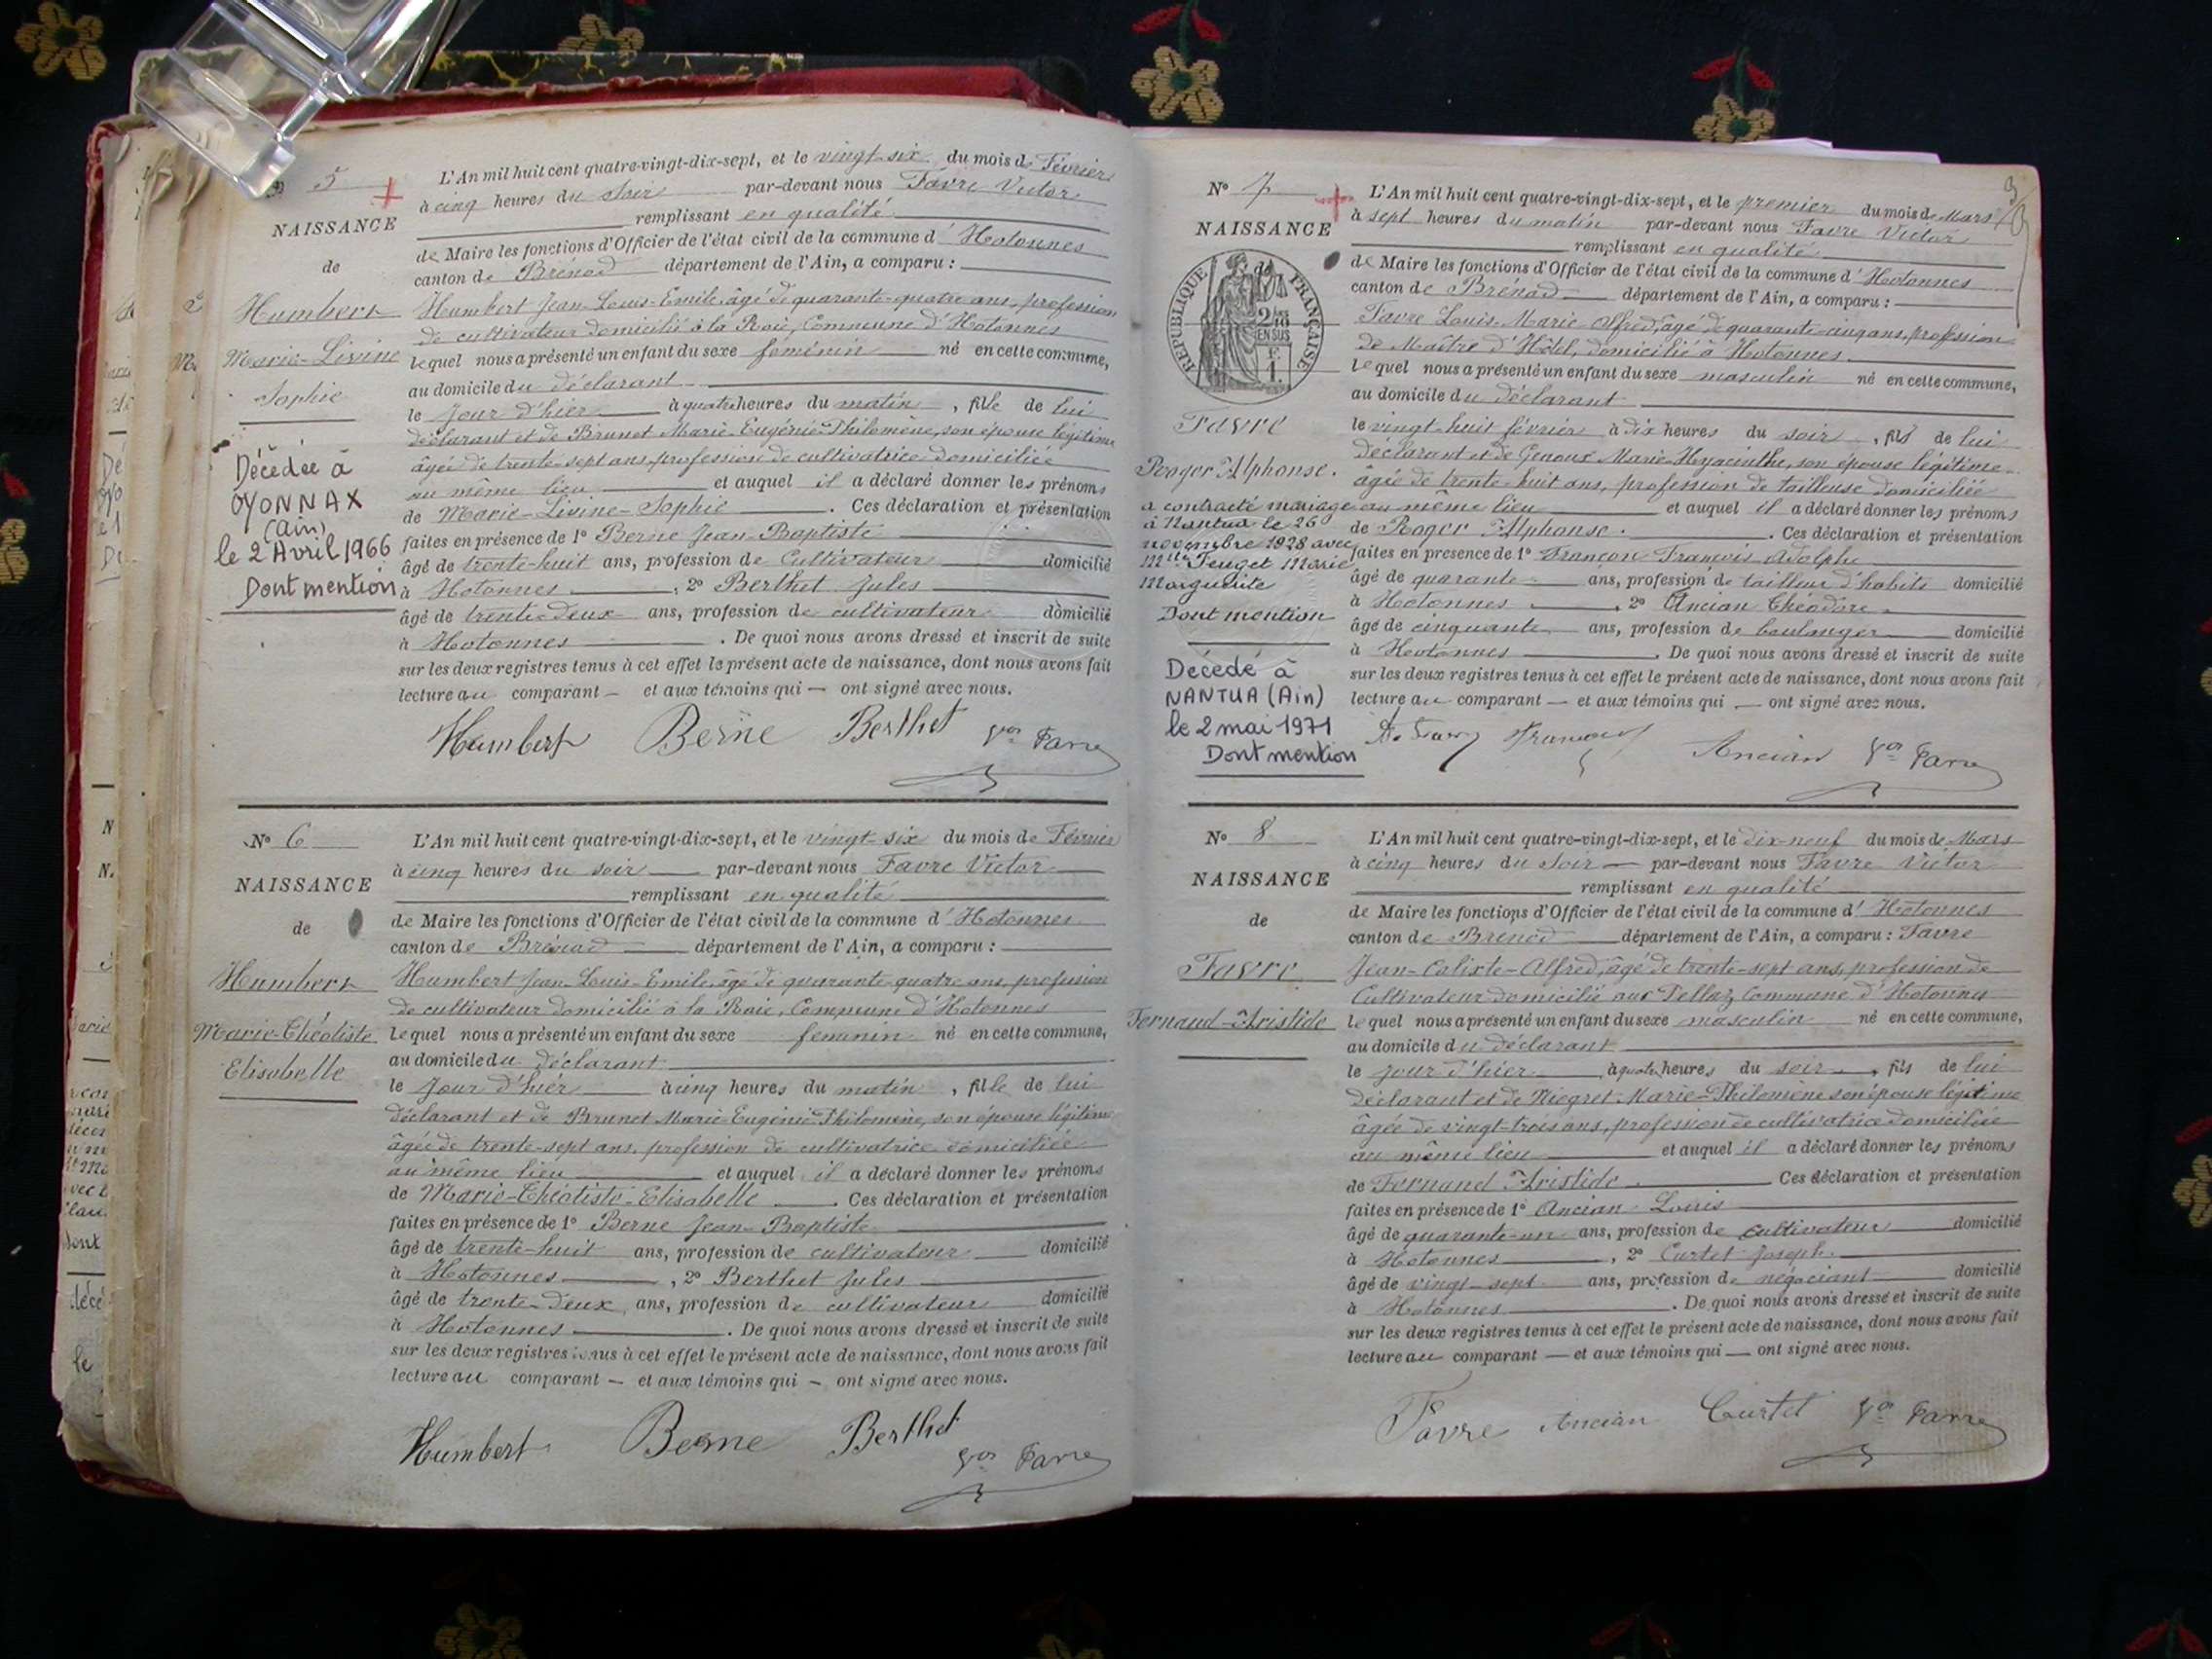 5
NAISSANCE
de
Humbert
Marie-Livine
Sophie
Décédée à
OYONNAX
(Ain)
le 2 Avril 1966
Dont mention
L'An mil huit cent quatre-vingt-dix-sept, et le vingt-six du mois de Février
à cinq heures du soir par-devant nous Favre Victor
remplissant en qualité
de Maire les fonctions d'Officier de l'état civil de la commune d'Hotonnes
canton de Brénod département de l'Ain, a comparu :
Humbert Jean-Louis-Emile, âgé de quarante-quatre ans, profession
de cultivateur domicilié à la Raie, Commune d'Hotonnes
lequel nous a présenté un enfant du sexe féminin né en cette commune,
au domicile du déclarant
le jour d'hier à quatre heures du matin, fille de lui
déclarant et de Brunet Marie-Eugénie-Philomène, son épouse légitime
âgée de trente-sept ans, profession de cultivatrice domiciliée
au même lieu et auquel il a déclaré donner les prénoms
de Marie-Livine-Sophie. Ces déclaration et présentation
faites en présence de 1° Berne Jean-Baptiste
âgé de trente-huit ans, profession de Cultivateur domicilié
à Hotonnes, 2° Berthet Jules
âgé de trente-deux ans, profession de cultivateur domicilié
à Hotonnes. De quoi nous avons dressé et inscrit de suite
sur les deux registres tenus à cet effet le présent acte de naissance, dont nous avons fait
lecture au comparant — et aux témoins qui — ont signé avec nous.
Humbert Berne Berthet Vor Favre
N° 6
NAISSANCE
de
Humbert
Marie-Théotiste
Elisabelle
L'An mil huit cent quatre-vingt-dix-sept, et le vingt-six du mois de Février
à cinq heures du soir par-devant nous Favre Victor
remplissant en qualité
de Maire les fonctions d'Officier de l'état civil de la commune d'Hotonnes
canton de Brénod département de l'Ain, a comparu :
Humbert Jean-Louis-Emile, âgé de quarante-quatre ans, profession
de cultivateur domicilié à la Raie, Commune d'Hotonnes
lequel nous a présenté un enfant du sexe féminin né en cette commune,
au domicile du déclarant
le jour d'hier à cinq heures du matin, fille de lui
déclarant et de Brunet Marie-Eugénie-Philomène, son épouse légitime
âgée de trente-sept ans, profession de cultivatrice domiciliée
au même lieu et auquel il a déclaré donner les prénoms
de Marie-Théotiste-Elisabelle. Ces déclaration et présentation
faites en présence de 1° Berne Jean-Baptiste
âgé de trente-huit ans, profession de cultivateur domicilié
à Hotonnes, 2° Berthet Jules
âgé de trente-deux ans, profession de cultivateur domicilié
à Hotonnes. De quoi nous avons dressé et inscrit de suite
sur les deux registres tenus à cet effet le présent acte de naissance, dont nous avons fait
lecture au comparant — et aux témoins qui — ont signé avec nous.
Humbert Berne Berthet Vor Favre
3
N° 7
NAISSANCE
de
RÉPUBLIQUE FRANÇAISE
2/10 EN SUS
1 F.
Favre
Roger Alphonse.
a contracté mariage
à Nantua le 26
novembre 1928 avec
Mlle Feuget Marie
Marguerite
Dont mention
Décédé à
NANTUA (Ain)
le 2 mai 1971
Dont mention
L'An mil huit cent quatre-vingt-dix-sept, et le premier du mois de Mars
à sept heures du matin par-devant nous Favre Victor
remplissant en qualité
de Maire les fonctions d'Officier de l'état civil de la commune d'Hotonnes
canton de Brénod département de l'Ain, a comparu :
Favre Louis-Marie-Alfred, âgé de quarante-cinq ans, profession
de Maître d'Hôtel, domicilié à Hotonnes
lequel nous a présenté un enfant du sexe masculin né en cette commune,
au domicile du déclarant
le vingt-huit février à dix heures du soir, fils de lui
déclarant et de Genoux Marie-Hyacinthe, son épouse légitime
âgée de trente-huit ans, profession de tailleuse domiciliée
au même lieu et auquel il a déclaré donner les prénoms
de Roger Alphonse. Ces déclaration et présentation
faites en présence de 1° Françon François Adolphe
âgé de quarante ans, profession de tailleur d'habits domicilié
à Hotonnes, 2° Ancian Théodore
âgé de cinquante ans, profession de boulanger domicilié
à Hotonnes. De quoi nous avons dressé et inscrit de suite
sur les deux registres tenus à cet effet le présent acte de naissance, dont nous avons fait
lecture au comparant — et aux témoins qui — ont signé avec nous.
Favre Françon Ancian Vor Favre
N° 8
NAISSANCE
de
Favre
Fernand-Aristide
L'An mil huit cent quatre-vingt-dix-sept, et le dix-neuf du mois de Mars
à cinq heures du soir — par-devant nous Favre Victor
remplissant en qualité
de Maire les fonctions d'Officier de l'état civil de la commune d'Hotonnes
canton de Brénod département de l'Ain, a comparu : Favre
Jean-Calixte-Alfred, âgé de trente-sept ans, profession de
Cultivateur domicilié aux Pellaz, Commune d'Hotonnes
lequel nous a présenté un enfant du sexe masculin né en cette commune,
au domicile du déclarant
le jour d'hier à quatre heures du soir, fils de lui
déclarant et de Niogret Marie-Philomène son épouse légitime
âgée de vingt-trois ans, profession de cultivatrice domiciliée
au même lieu et auquel il a déclaré donner les prénoms
de Fernand Aristide. Ces déclaration et présentation
faites en présence de 1° Ancian Louis
âgé de quarante-un ans, profession de cultivateur domicilié
à Hotonnes, 2° Curtet Joseph
âgé de vingt-sept ans, profession de négociant domicilié
à Hotonnes. De quoi nous avons dressé et inscrit de suite
sur les deux registres tenus à cet effet le présent acte de naissance, dont nous avons fait
lecture au comparant — et aux témoins qui — ont signé avec nous.
Favre Ancian Curtet Vor Favre